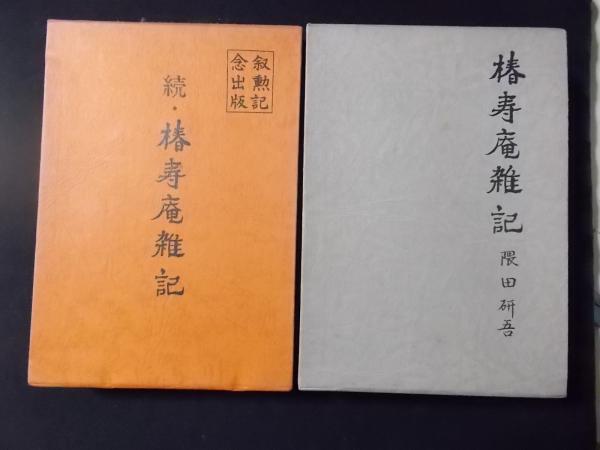 叙勲記
念出版
続・椿寿庵雑記
椿寿庵雑記
隈田研吾